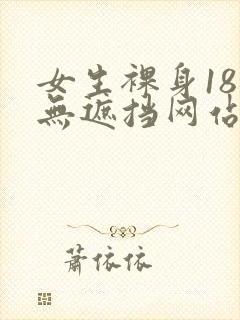 女生裸身18
無遮挡网佔
蕭依依